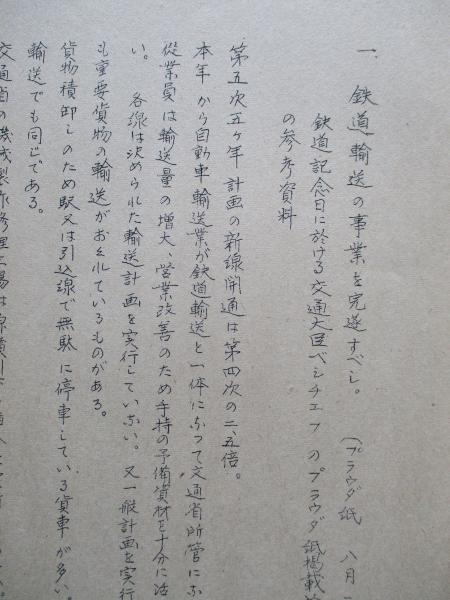 一、鉄道輸送の事業を完遂すべし。 (プラウダ紙 八月
鉄道記念日に於ける交通大臣ベシチェフのプラウダ紙掲載
の参考資料
第五次五ヶ年計画の新線開通は第四次の二、五倍。
本年から自動車輸送業が鉄道輸送と一体になつて交通省所管にな
従業員は輸送量の増大、営業改善のため手持の予備資材を十分に活
い。 各線は決められた輸送計画を実行していない。又一般計画を実行
も重要貨物の輸送がおくれているものがある。
貨物積卸しのため駅又は引込線で無駄に停車している貨車が多い。
輸送でも同じである。
交通省の機械製作修理工場は